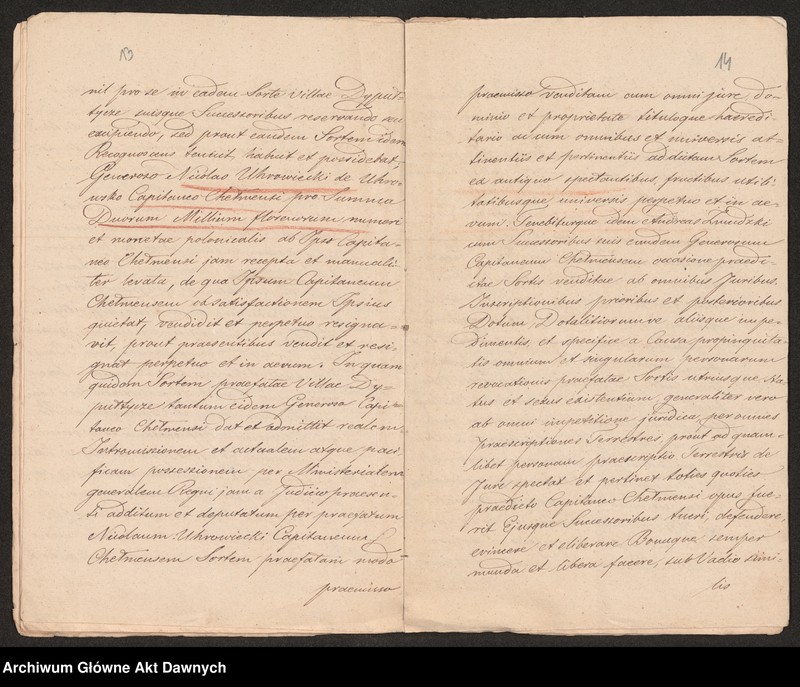 13
nil pro se in eadem Sorte Villae Dyput-
tycze suisque Successoribus reservando seu
excipiendo, sed prout eandem Sortem idem
Recognoscens tenuit, habuit et possidebat,
Generoso Nicolao Uhrowiecki de Uhro-
wsko Capitaneo Chełmensi pro Summa
Duorum Millium florenorum numeri
et monetae polonicalis ab Ipso Capita-
neo Chełmensi jam recepta et manuali-
ter levata, de qua Ipsum Capitaneum
Chełmensem ob satisfactionem Ipsius
quietat, vendidit et perpetuo resigna-
vit, prout praesentibus vendit et resi-
gnat perpetuo et in aevum. In quam
quidem Sortem praefatae Villae Dy-
puttycze tantum eidem Generoso Capi-
taneo Chełmensi dat et admittit realem
Intromissionem et actualem atque paci-
ficam possessionem per Ministerialem
generalem Regni jam a Judicio praesen-
ti additum et deputatum per praefatum
Nicolaum Uhrowiecki Capitaneum
Chełmensem Sortem praefatam modo
praemisso
14
praemisso venditam cum omni jure, do-
minio et proprietate tituloque haeredi-
tario ac cum omnibus et universis at-
tinentiis et pertinentiis ad dictam Sortem
ex antiquo spectantibus, fructibus utili-
tatibusque universis perpetuo et in ae-
vum. Tenebiturque idem Andreas
cum Successoribus suis eundem Generosum
Capitaneum Chełmensem occasione praedi-
ctae Sortis venditae ab omnibus Juribus,
Inscriptionibus prioribus et posterioribus
Dotum, Dotalitiorumve aliisque impe-
dimentis, et specifice a Causa propinquita-
tis omnium et singularum personarum
revocationis praefatae Sortis utriusque Sta-
tus et sexus existentium, generaliter vero
ab omni impetitione juridica, per omnes
Praescriptiones Terrestres prout ad quam-
libet personam praescriptio Terrestris de
Jure spectat et pertinet toties quoties
praedicto Capitaneo Chełmensi opus fue-
rit Ejusque Successoribus tueri, defendere,
evincere et eliberare Bonaque semper
munda et libera facere, sub Vadio simi-
lis
Archiwum Główne Akt Dawnych